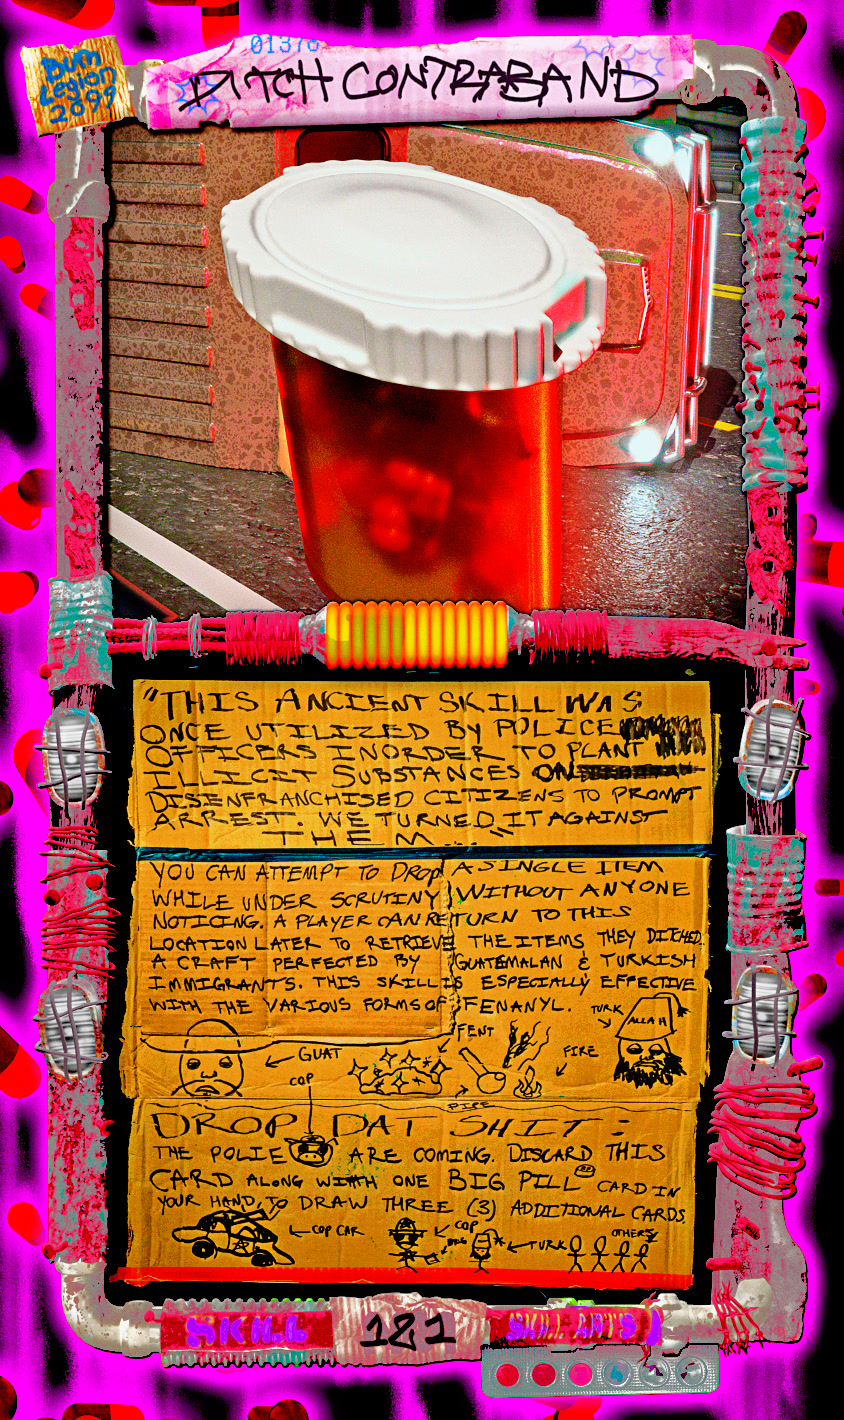 01376
BUM
Legion
2099
DITCH CONTRABAND
"THIS ANCIENT SKILL WAS
ONCE UTILIZED BY POLICE
OFFICERS INORDER TO PLANT
ILLICIT SUBSTANCES ON
DISENFRANCHISED CITIZENS TO PROMPT
ARREST. WE TURNED IT AGAINST
THEM..."
YOU CAN ATTEMPT TO DROP A SINGLE ITEM
WHILE UNDER SCRUTINY WITHOUT ANYONE
NOTICING. A PLAYER CAN RETURN TO THIS
LOCATION LATER TO RETRIEVE THE ITEMS THEY DITCHED.
A CRAFT PERFECTED BY GUATEMALAN & TURKISH
IMMIGRANTS. THIS SKILL IS ESPECIALLY EFFECTIVE
WITH THE VARIOUS FORMS OF FENANYL.
TURK
ALLAH
FENT
GUAT
FIRE
COP
PIPE
DROP DAT SHIT:
THE POLIE ARE COMING. DISCARD THIS
CARD ALONG WITH ONE BIG PILL CARD IN
YOUR HAND, TO DRAW THREE (3) ADDITIONAL CARDS.
COP CAR
COP
TURK
OTHERS
SKILL
181